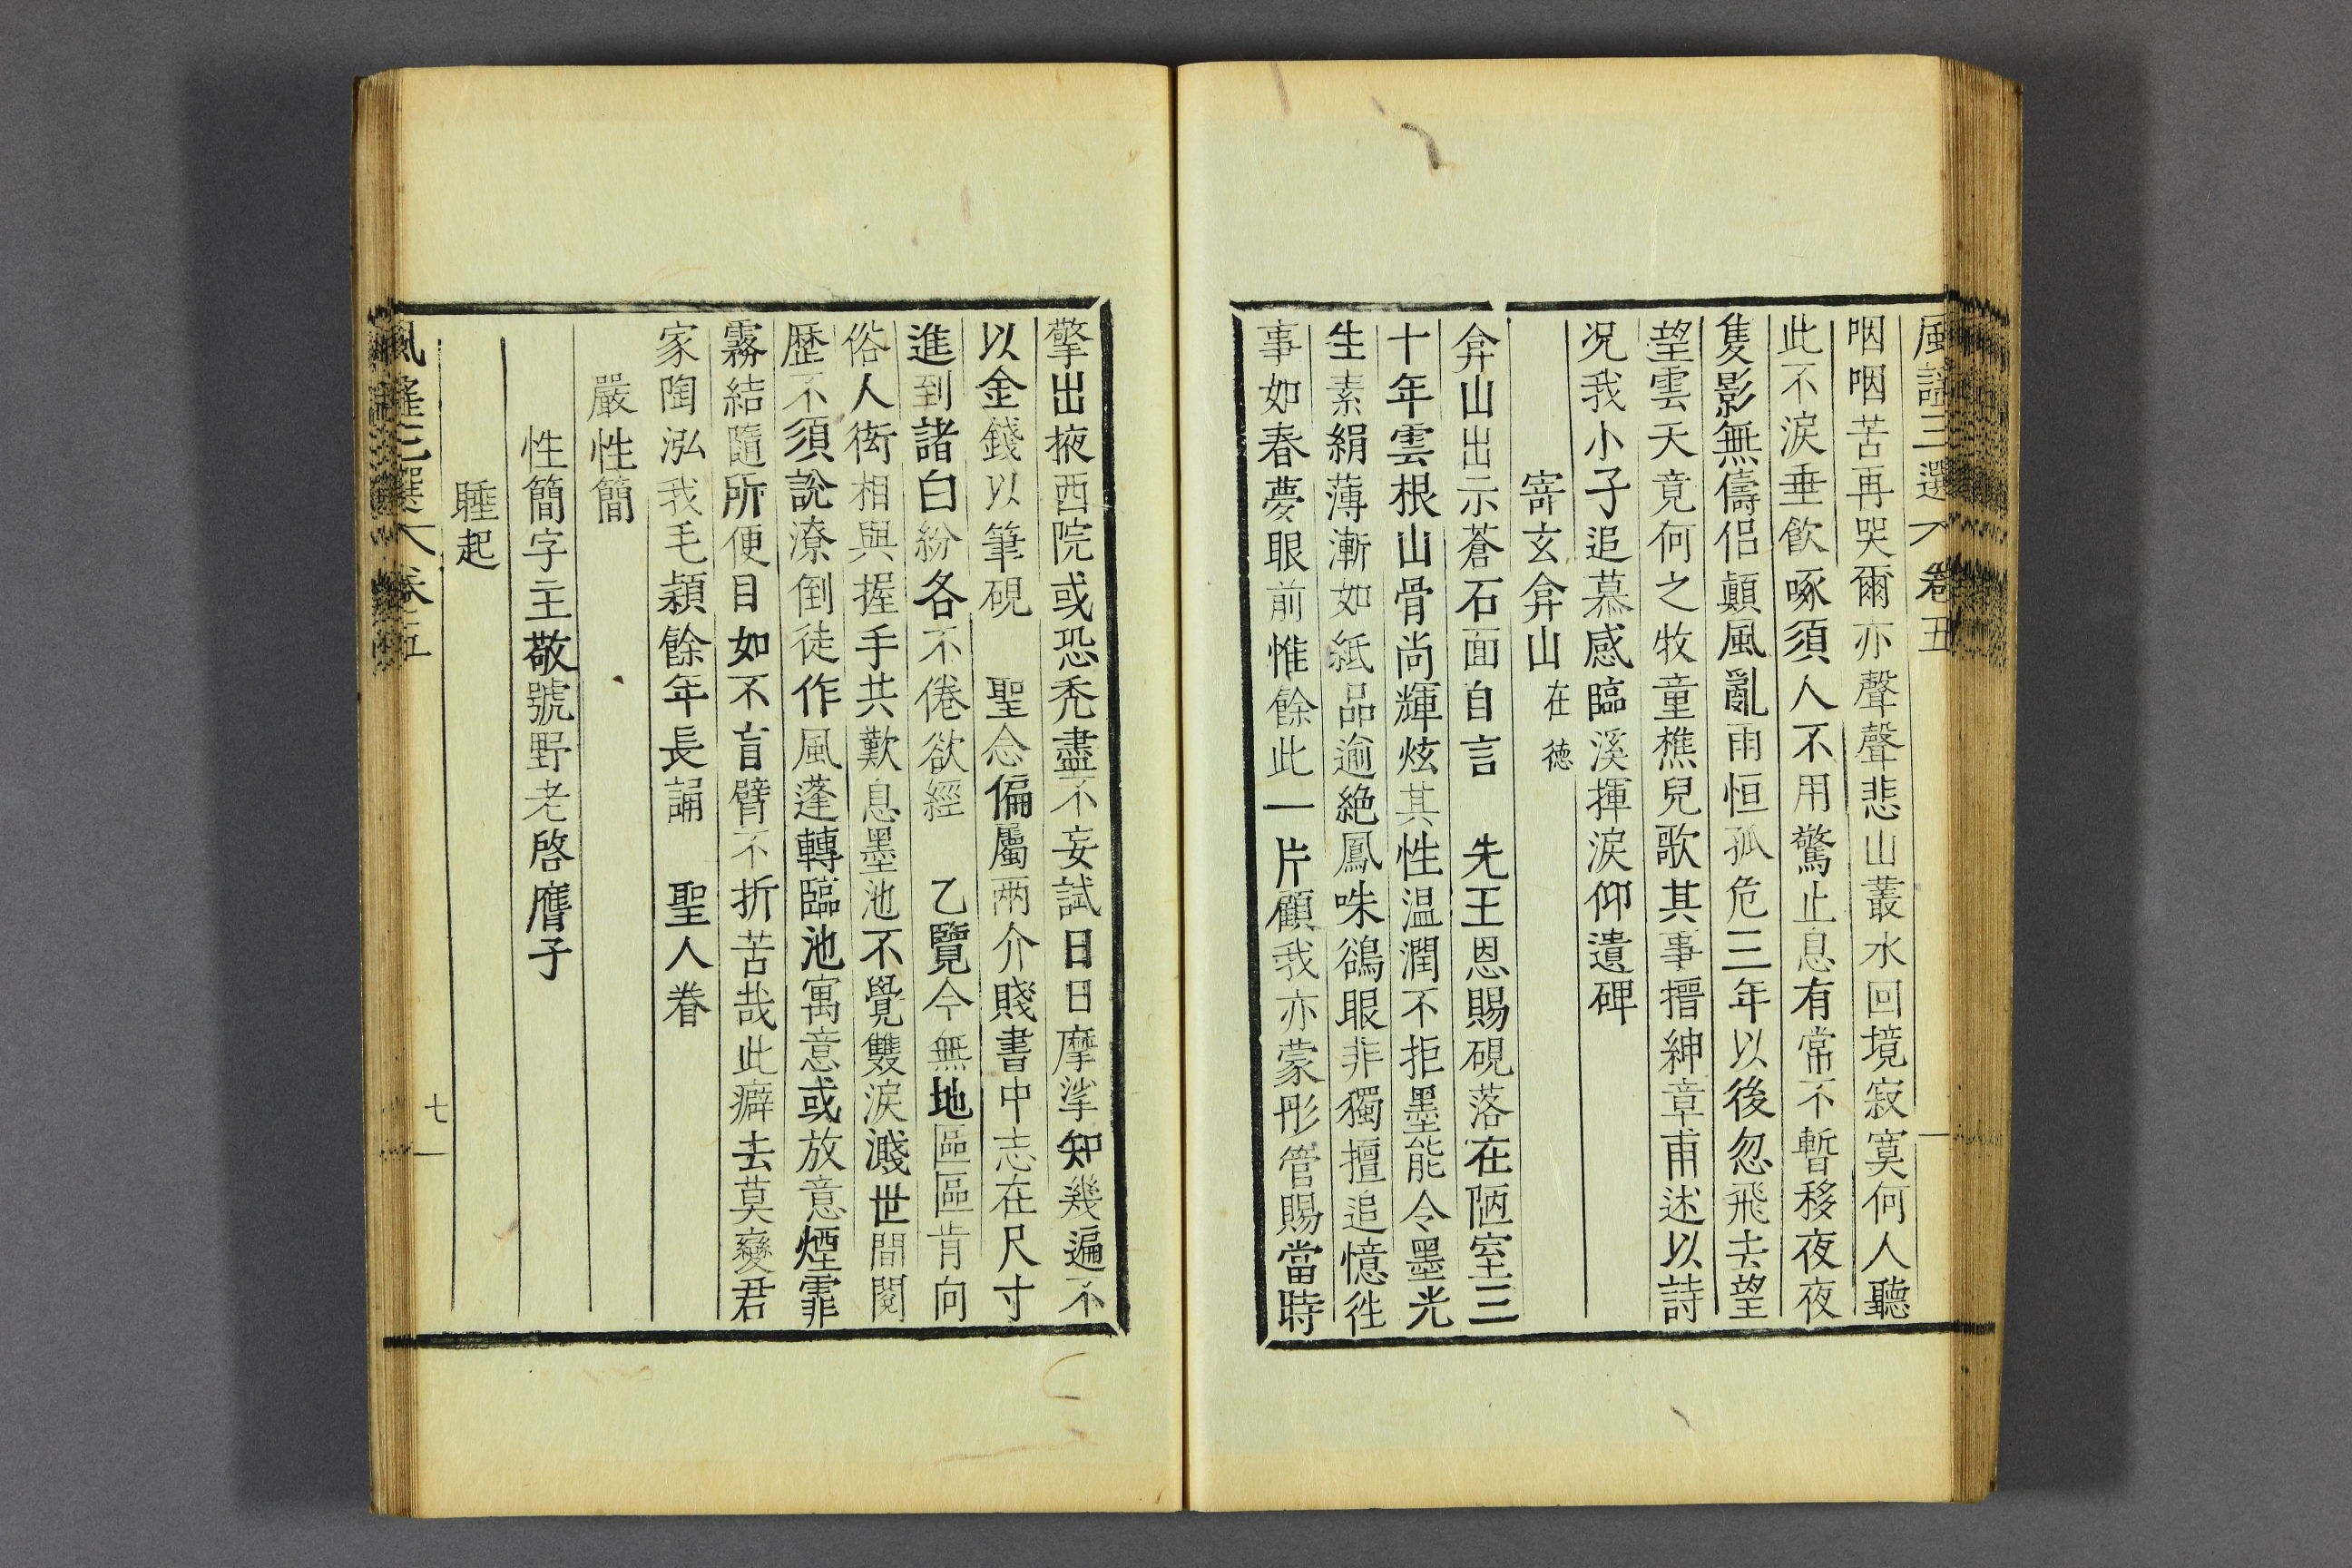 風謠三選 卷五
咽咽苦再哭爾亦聲聲悲山叢水回境寂寞何人聽
此不淚垂飮啄須人不用驚止息有常不暫移夜夜
隻影無儔侶顛風亂雨恒孤危三年以後忽飛去望
望雲天竟何之牧童樵兒歌其事搢紳章甫述以詩
况我小子追慕感臨溪揮淚仰遺碑
寄玄弇山 在德
弇山出示蒼石面自言 先王恩賜硯落在陋室三
十年雲根山骨尚輝炫其性温潤不拒墨能令墨光
生素絹薄漸如紙品逾絶鳳咮鵒眼非獨擅追憶徃
事如春夢眼前惟餘此一片顧我亦蒙彤管賜當時
擎出掖西院或恐禿盡不妄試日日摩挲知幾遍不
以金錢以筆硯 聖念偏屬兩介賤書中志在尺寸
進到諸白紛各不倦欲經 乙覽今無地區區肯向
俗人衒相與握手共歎息墨池不覺雙淚濺世間閱
歷不須說潦倒徒作風蓬轉臨池寓意或放意煙霏
霧結隨所便目如不盲臂不折苦哉此癖去莫變君
家陶泓我毛穎餘年長誦 聖人眷
嚴性簡
性簡字主敬號野老啓膺子
睡起
風謠三選 卷五
七